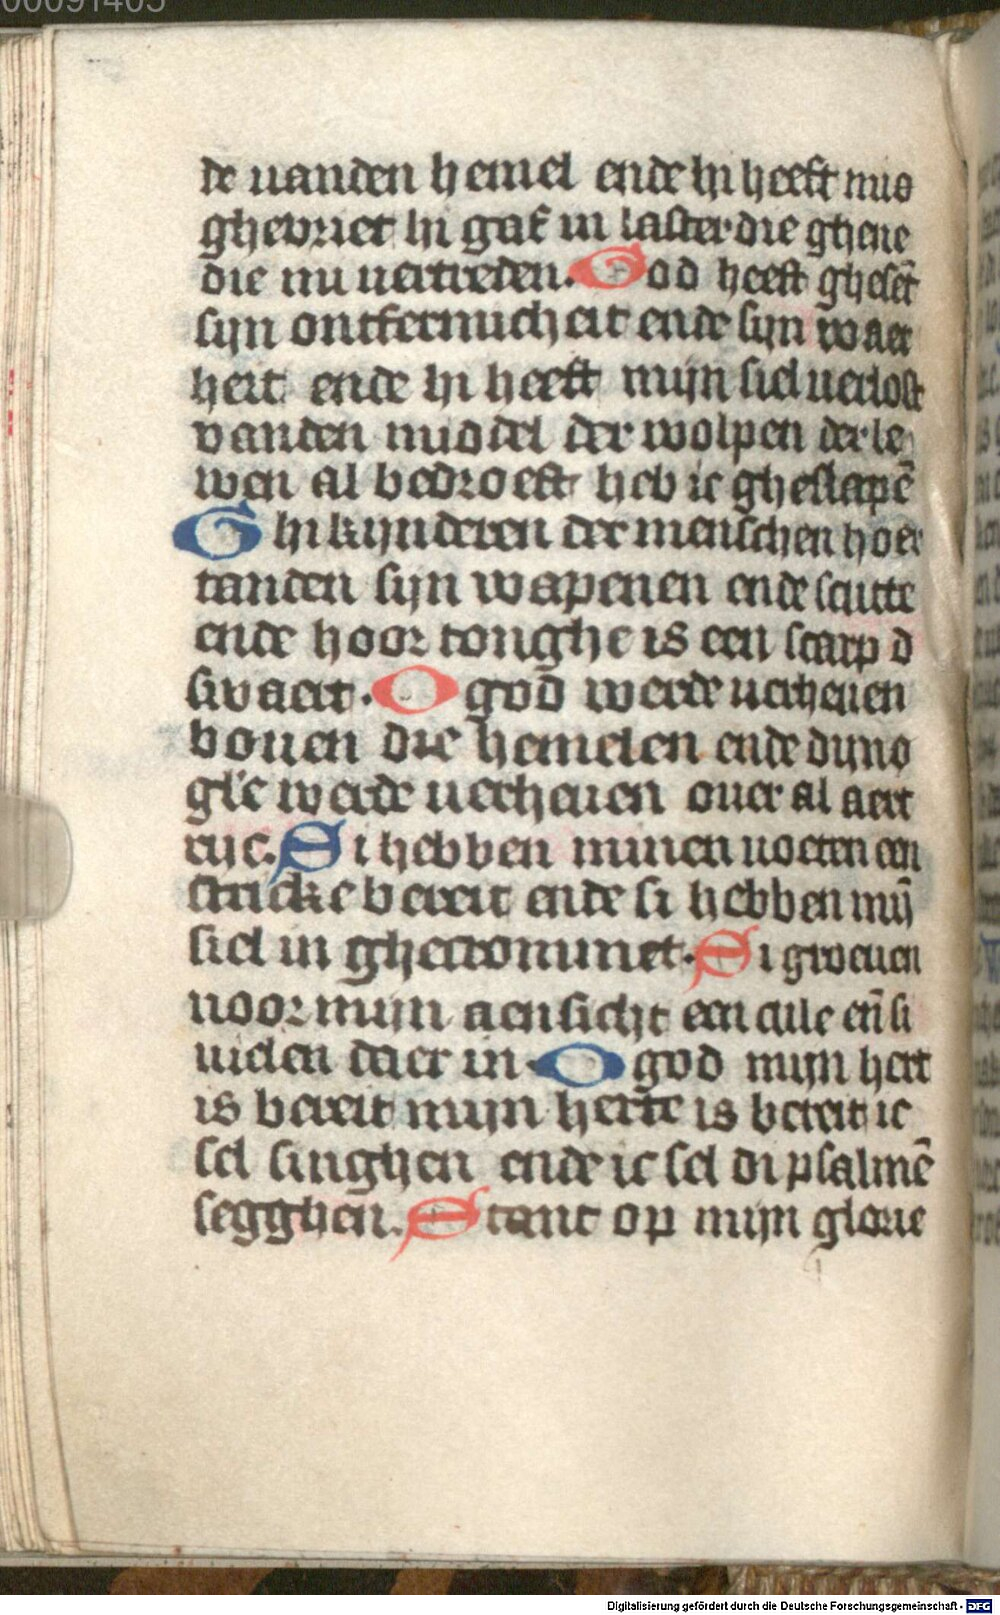 00091405
de uanden hemel ende hi heeft mi
ghevriet hi gaf in laster die ghene
die mi uertreden. God heeft ghesēt
sijn ontfermicheit ende sijn waer
heit ende hi heeft mijn siel uerlost
vanden middel der wolpen der le
wen al bedroeft heb ic gheslapē
Ghi kijnderen der menschen hoer
tanden sijn wapenen ende scutte
ende hoor tonghe is een scarp
swaert. O god werde uerheuen
bouen die hemelen ende dijn
glīe werde uerheuen ouer al aert
rijc. Si hebben minen uoeten een
stricke bereit ende si hebben mij̄
siel in ghecrommet. Si groeuen
uoor mijn aensicht een cule eñ si
uielen daer in. O god mijn hert
is bereit mijn herte is bereit ic
sel singhen ende ic sel di psalmē
segghen. Stant op mijn glorie
Digitalisierung gefördert durch die Deutsche Forschungsgemeinschaft - DFG